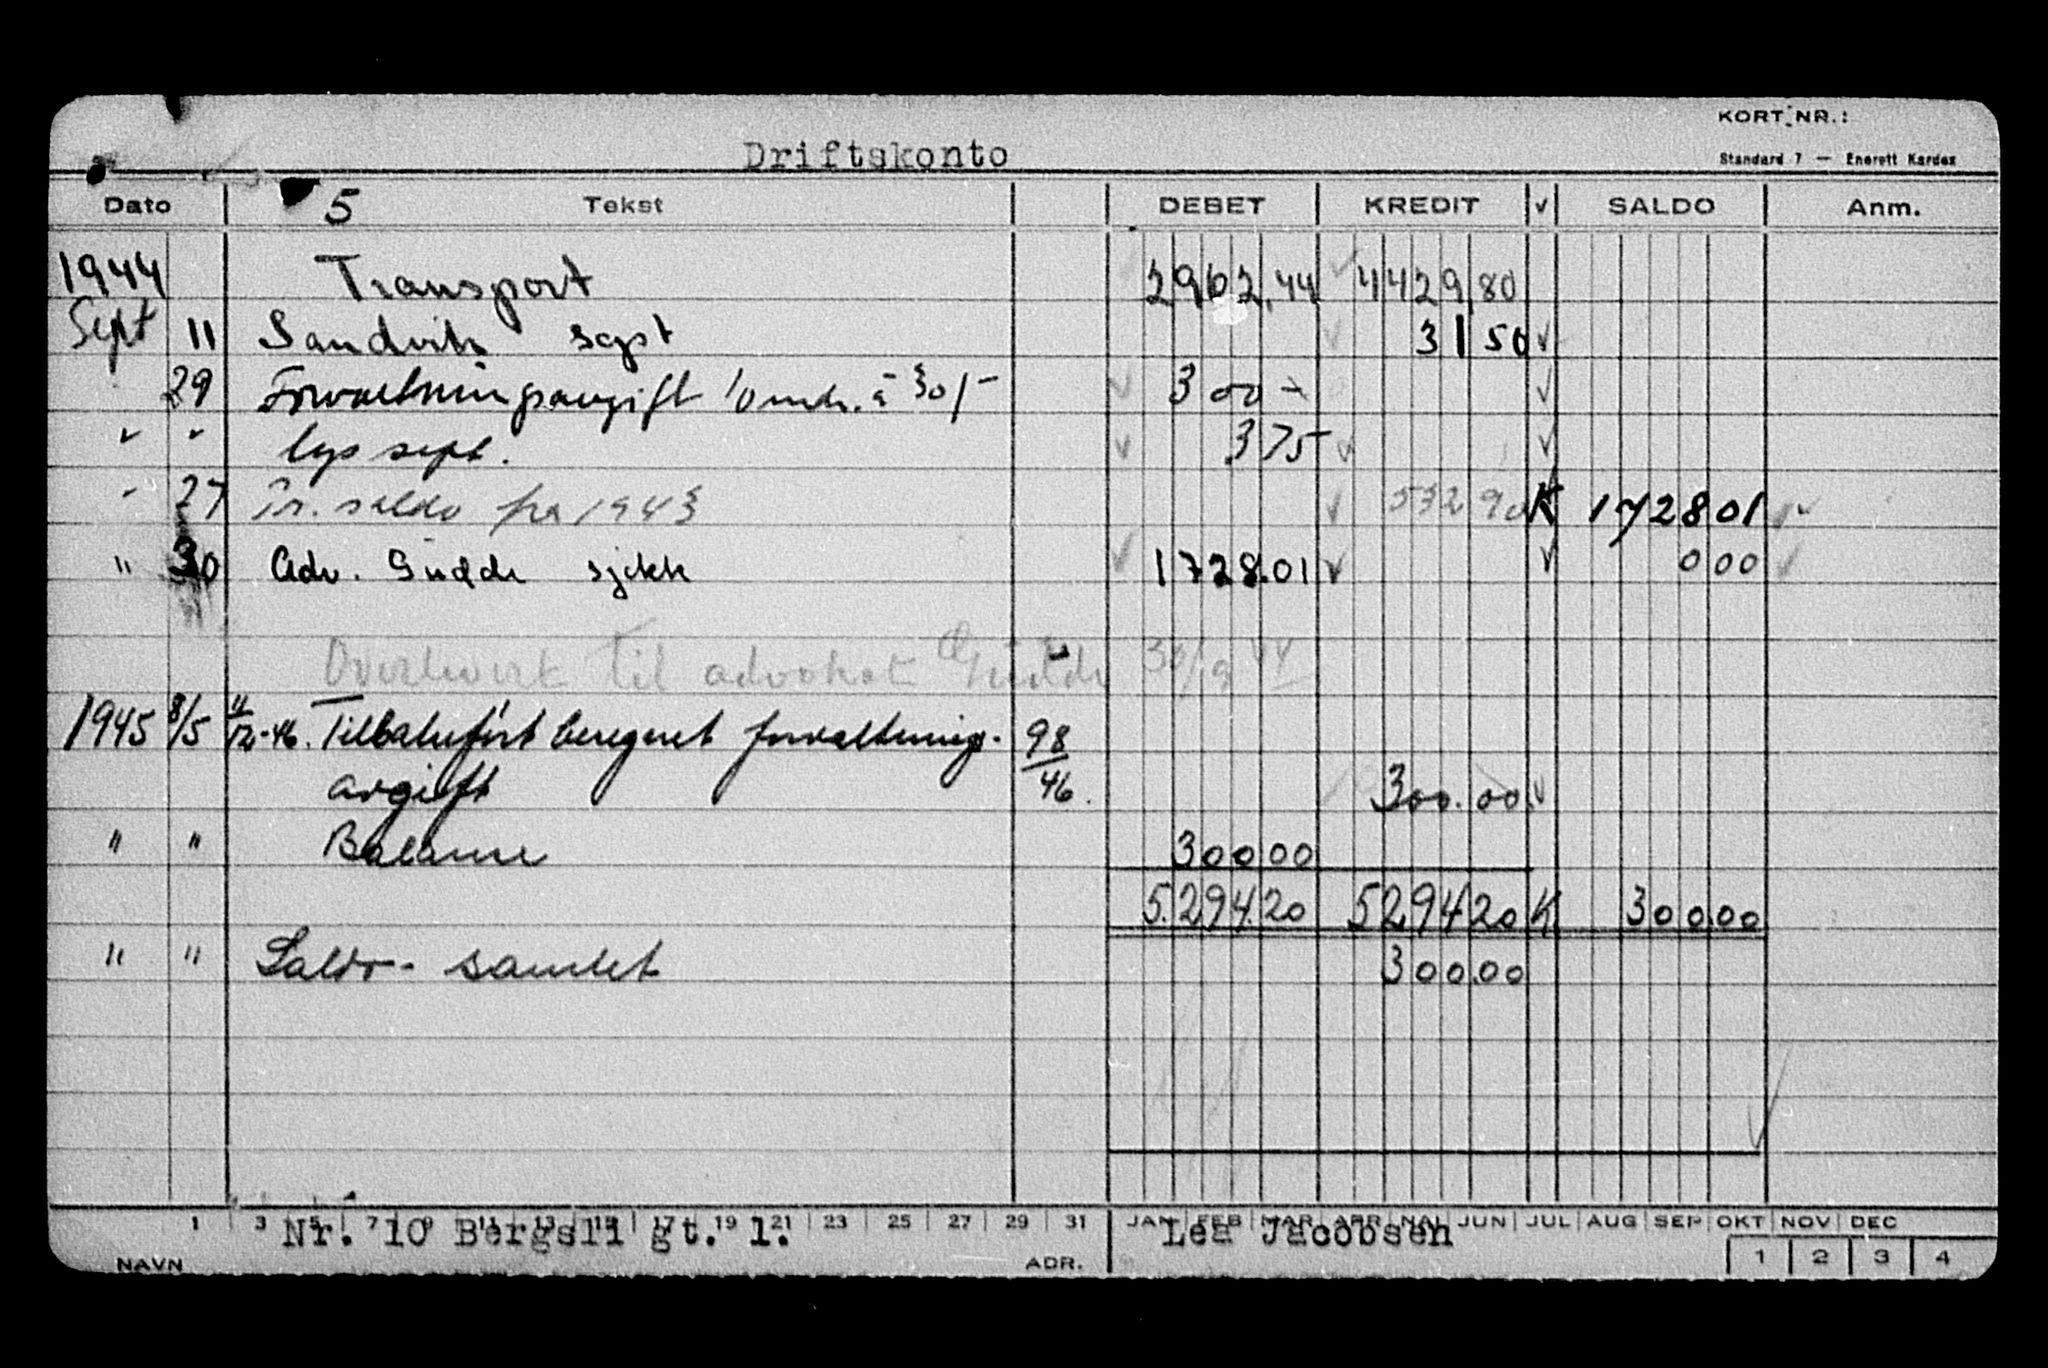 KORT NR.:
Driftskonto
Standard 7 — Enerett Kardex
Dato 5 Tekst DEBET KREDIT v SALDO Anm.
1944 Transport 2962,44 4429,80
Sept 11 Sandvik 3150
29 Forvaltningsavgift 10 mdr. à 30/- 300 -
" " lys sept. 375
" 27 Pr. saldo fra 1943 53290 K 172801
" 30 Adv. sjekk 1728.01 000
Overlevert til advokat 30/9 44
1945 8/5 11/12-46. Tilbakeført beregnet forvaltnings- 98/46.
avgift 300.00
" " Balanse 30000
5.294.20 529420 K 300.00
" " Saldo - samlet 300.00
1 3 5 7 9 11 13 15 17 19 21 23 25 27 29 31 JAN FEB MAR APR MAI JUN JUL AUG SEP OKT NOV DEC
Nr. 10 Bergsli gt. 1. Lea Jacobsen
NAVN ADR. 1 2 3 4